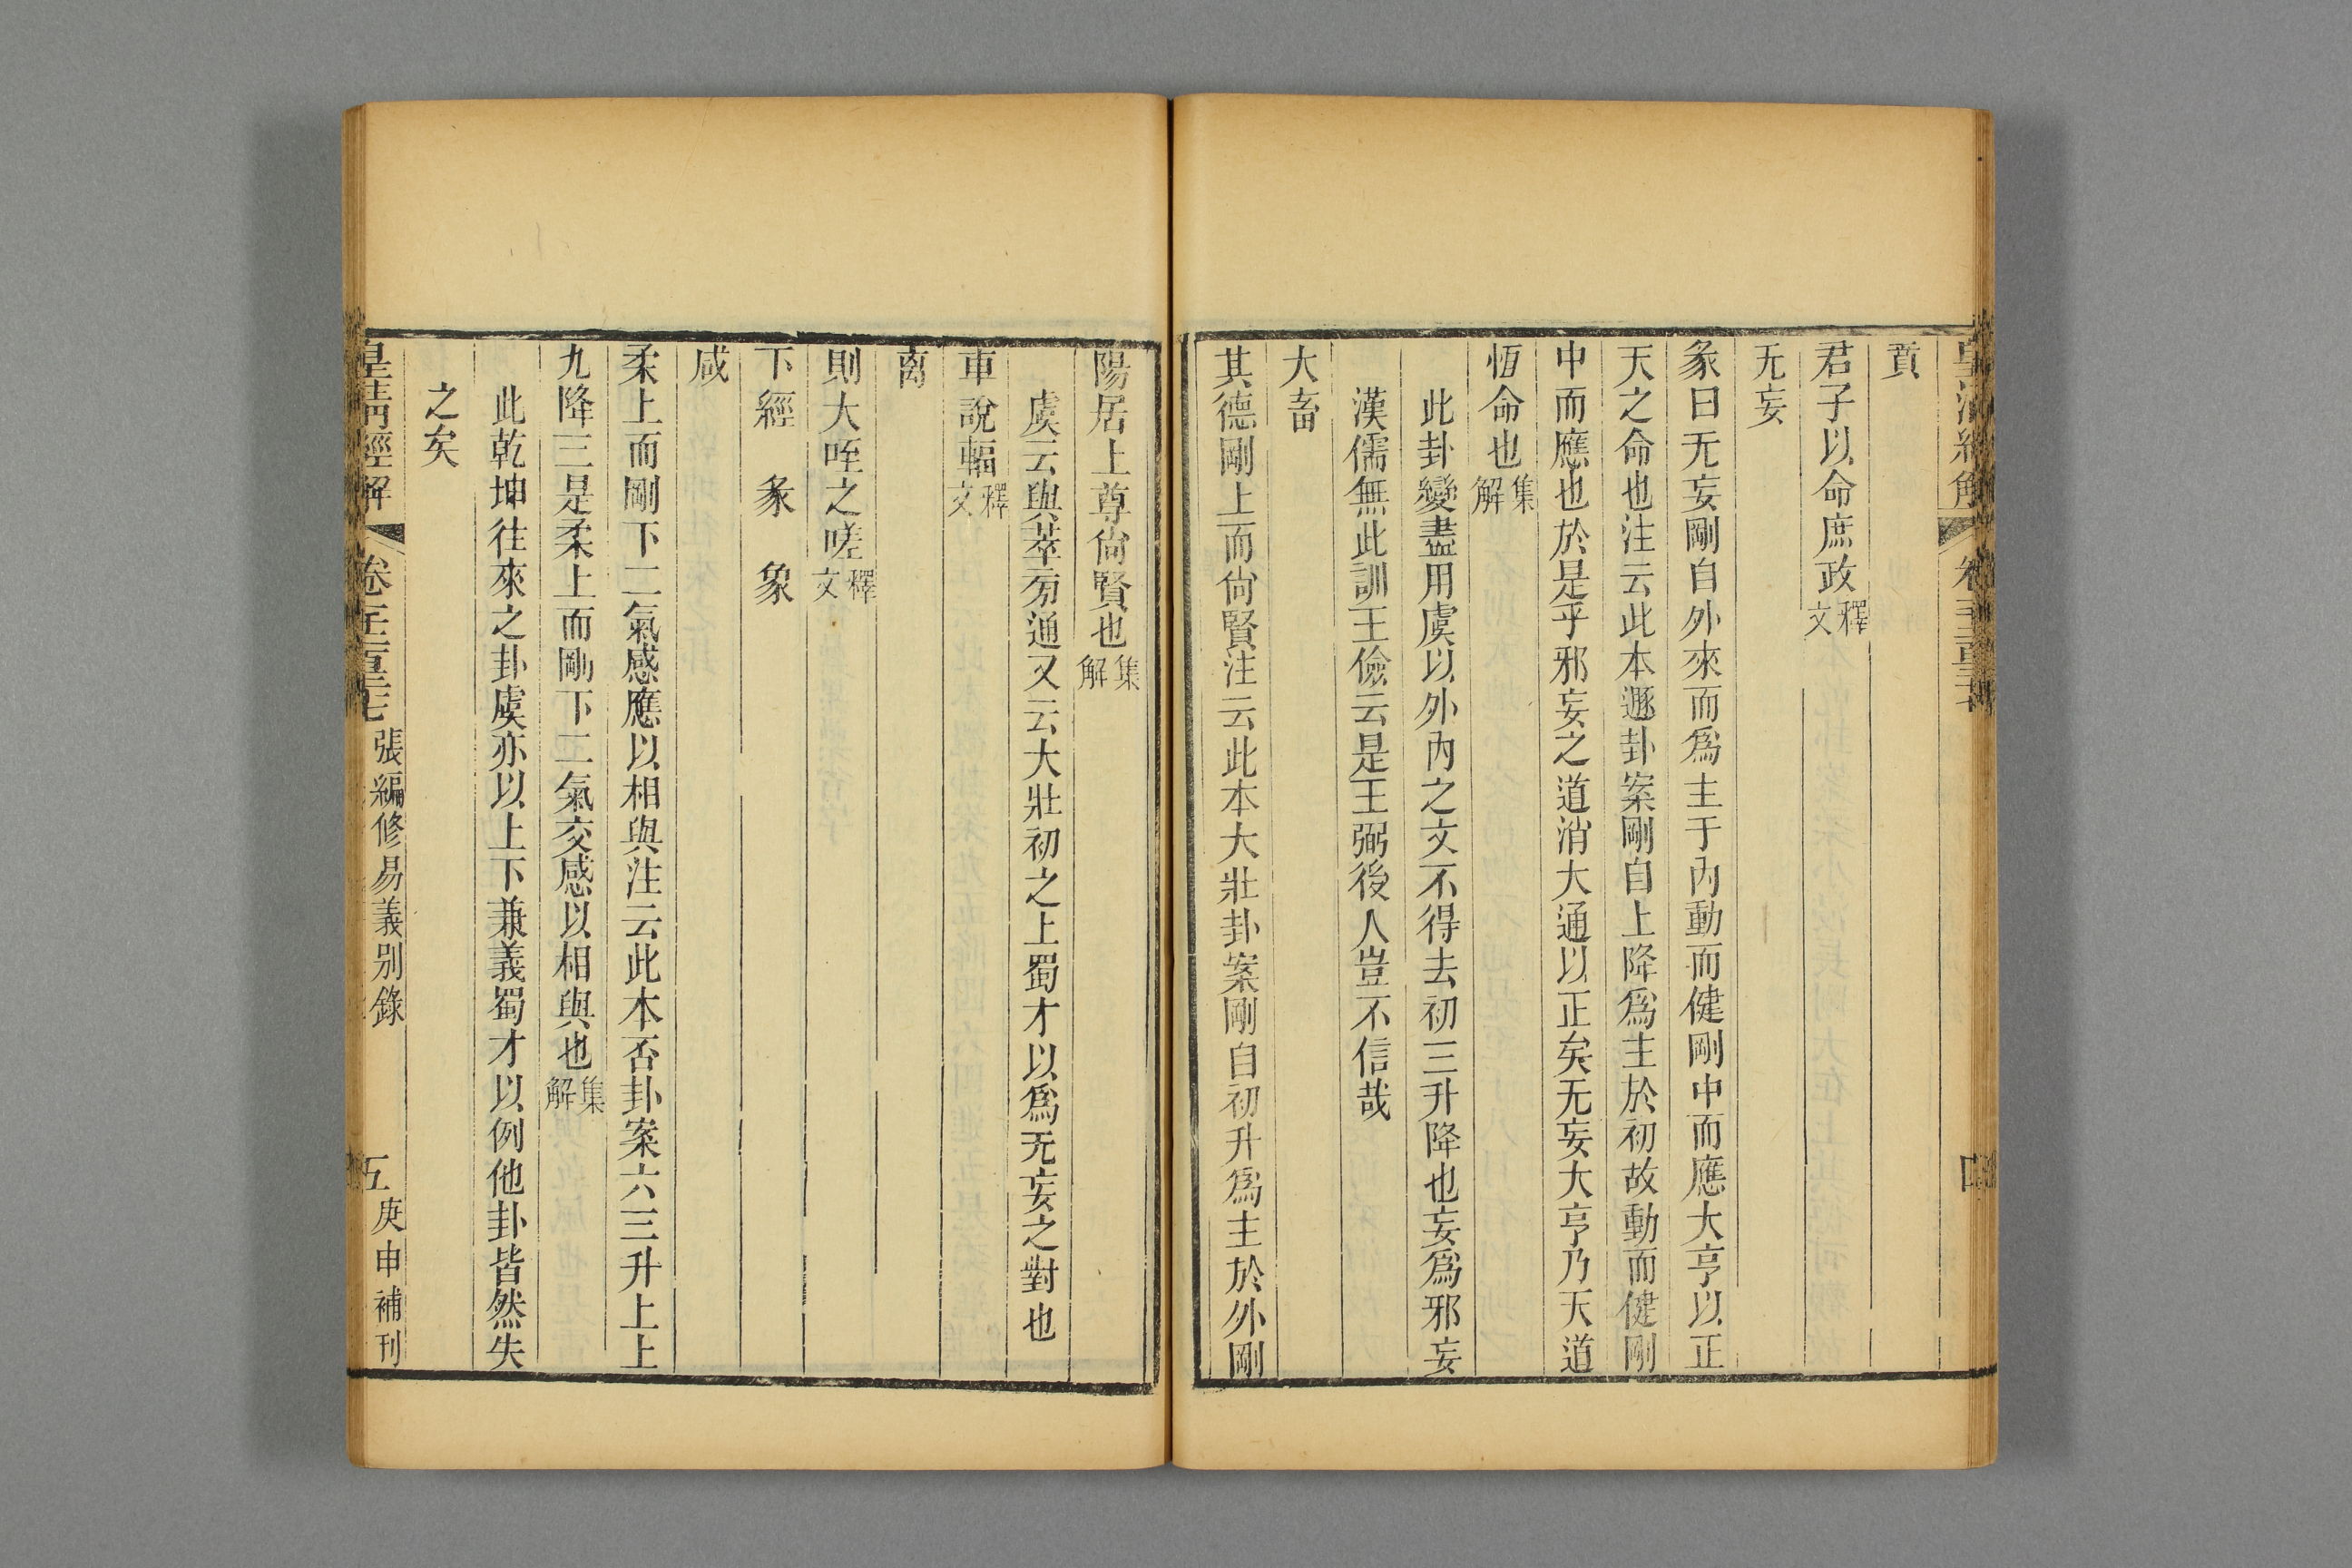 賁
君子以命庶政釋文
无妄
彖曰无妄剛自外來而爲主于內動而健剛中而應大亨以正
天之命也注云此本遯卦案剛自上降爲主於初故動而健剛
中而應也於是乎邪妄之道消大通以正矣无妄大亨乃天道
恆命也集解
此卦變盡用虞以外內之文不得去初三升降也妄爲邪妄
漢儒無此訓王儉云是王弼後人豈不信哉
大畜
其德剛上而尙賢注云此本大壯卦案剛自初升爲主於外剛
陽居上尊尙賢也集解
虞云與萃旁通又云大壯初之上蜀才以爲无妄之對也
車說輻釋文
离
則大咥之嗟釋文
下經 彖 象
咸
柔上而剛下二氣感應以相與注云此本否卦案六三升上上
九降三是柔上而剛下二氣交感以相與也集解
此乾坤往來之卦虞亦以上下兼義蜀才以例他卦皆然失
之矣
皇清經解 張編修易義別錄 五 庚申補刊